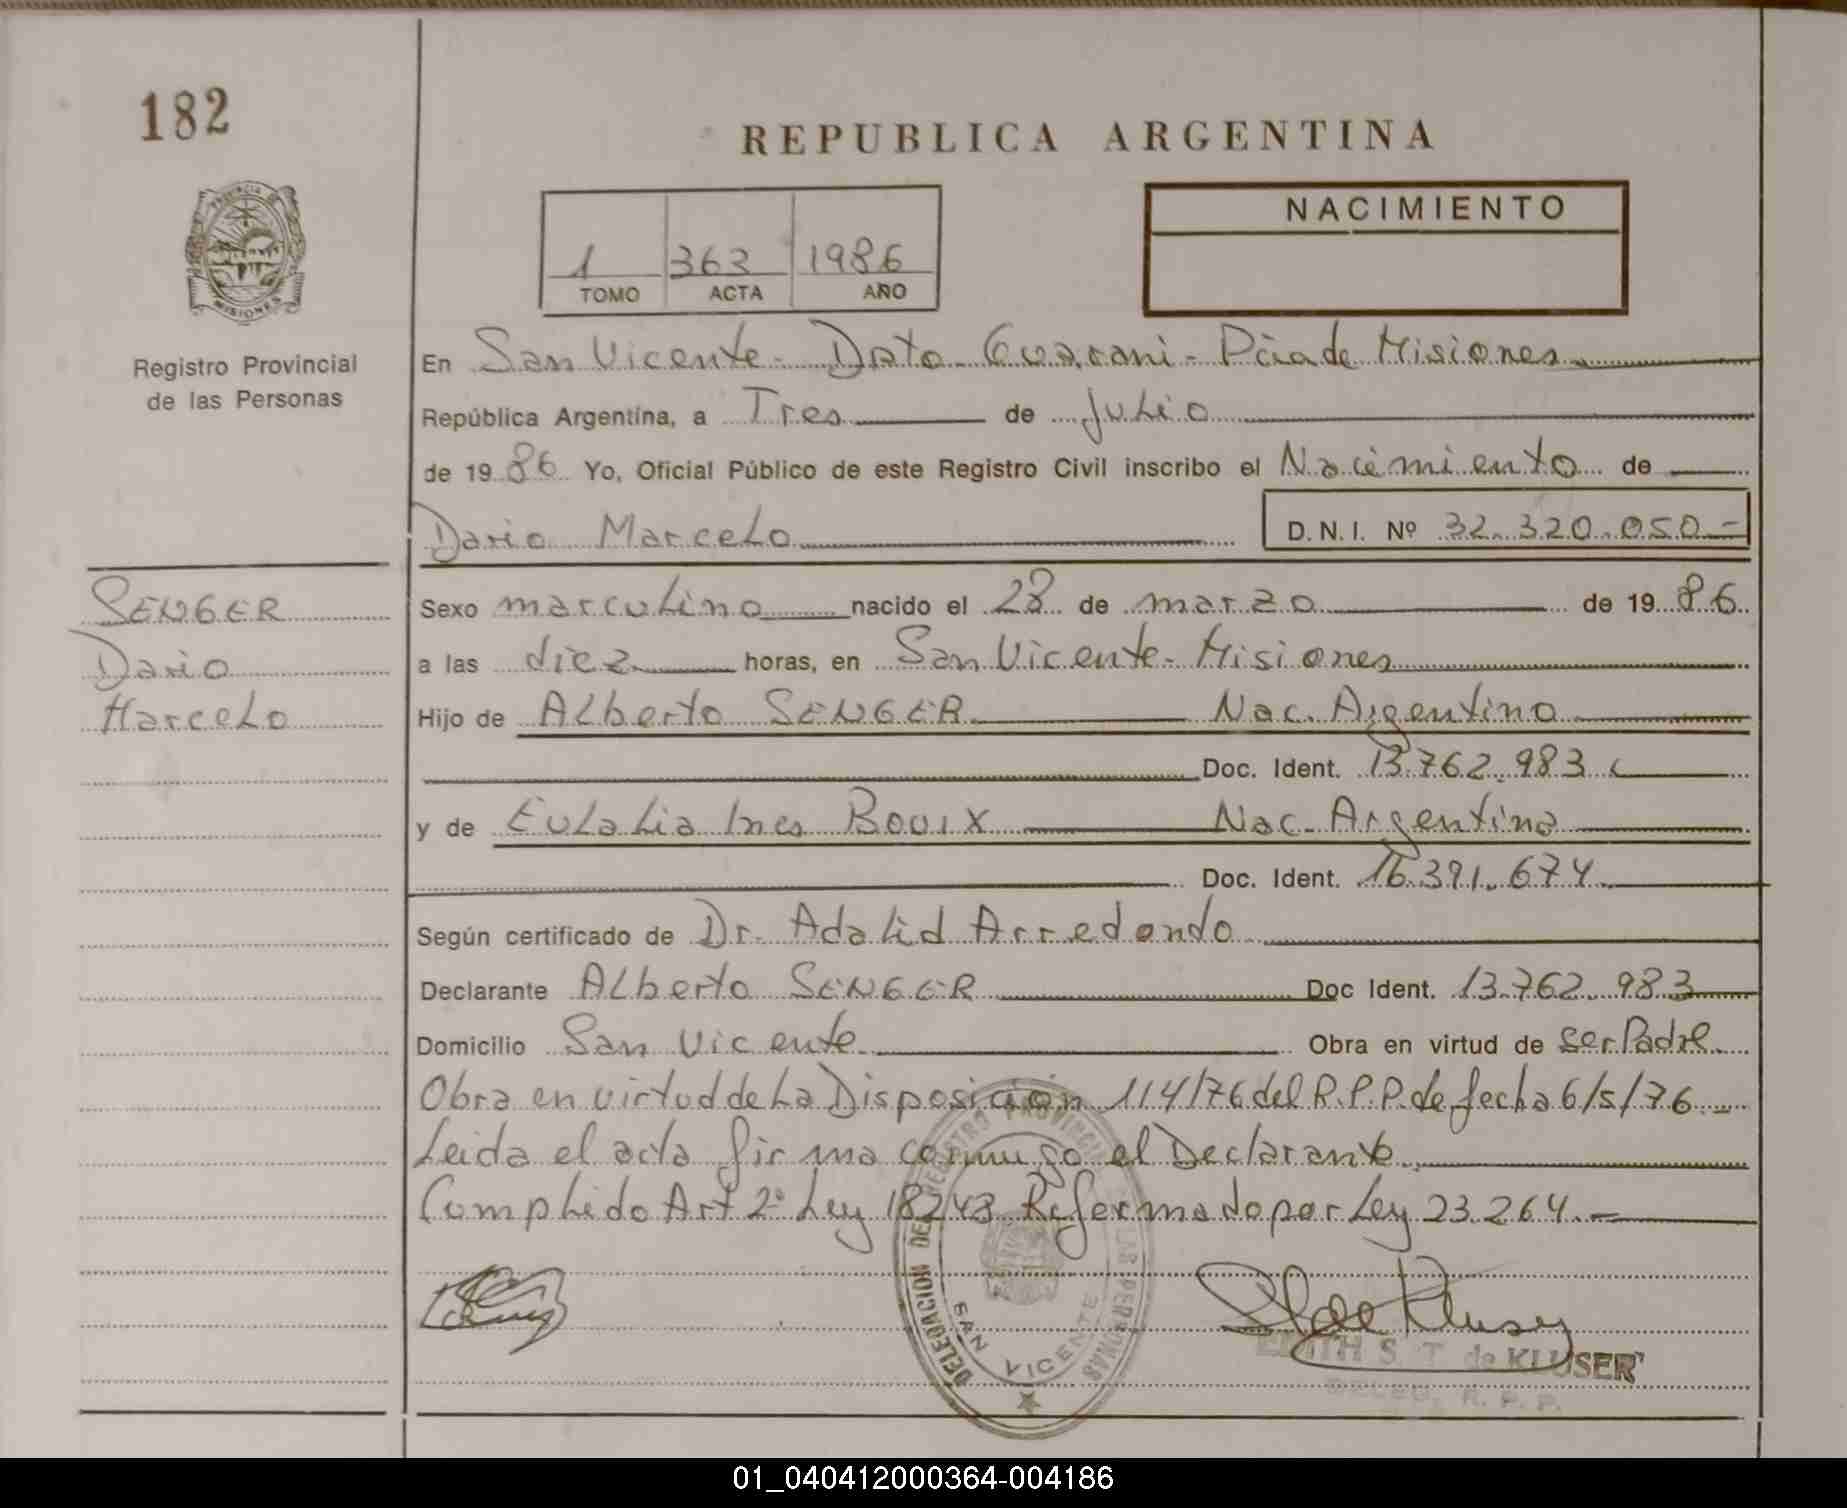 182
REPUBLICA ARGENTINA
NACIMIENTO
1 363 1986
TOMO ACTA AÑO
PROVINCIA DE
MISIONES
Registro Provincial
de las Personas
En San Vicente - Dpto Guarani - Pcia de Misiones
República Argentina, a Tres de Julio
de 1986 Yo, Oficial Público de este Registro Civil inscribo el Nacimiento de
Dario Marcelo D.N.I. Nº 32.320.050.-
SENGER
Dario
Marcelo
Sexo masculino nacido el 28 de marzo de 1986
a las diez horas, en San Vicente - Misiones
Hijo de Alberto SENGER Nac. Argentino
Doc. Ident. 13.762.983
y de Eulalia Ines BOUIX Nac. Argentina
Doc. Ident. 16.391.674
Según certificado de Dr. Adalid Arredondo
Declarante Alberto SENGER Doc Ident. 13.762.983
Domicilio San Vicente Obra en virtud de ser Padre
Obra en virtud de La Disposición 114/76 del R.P.P. de fecha 6/5/76.-
Leida el acta firma conmigo el Declarante
Cumplido Art 2º Ley 18248 Reformado por Ley 23.264.-
DELEGACION DEL REGISTRO PROVINCIAL DE LAS PERSONAS
SAN VICENTE
EDITH S. T. de KLUSER
DELEG. R. P. P.
01_040412000364-004186